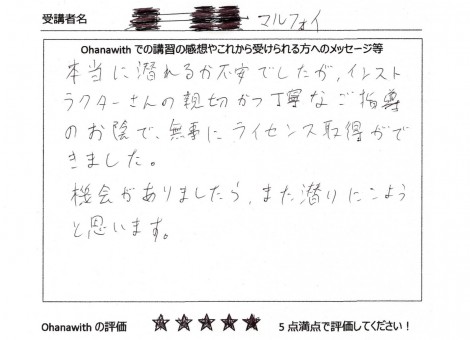 受講者名 マルフォイ
Ohanawith での講習の感想やこれから受けられる方へのメッセージ等
本当に潜れるか不安でしたが、インスト
ラクターさんの親切かつ丁寧なご指導
のお陰で、無事にライセンス取得がで
きました。
機会がありましたら、また潜りにこよう
と思います。
Ohanawith の評価 ★★★★★ 5 点満点で評価してください！